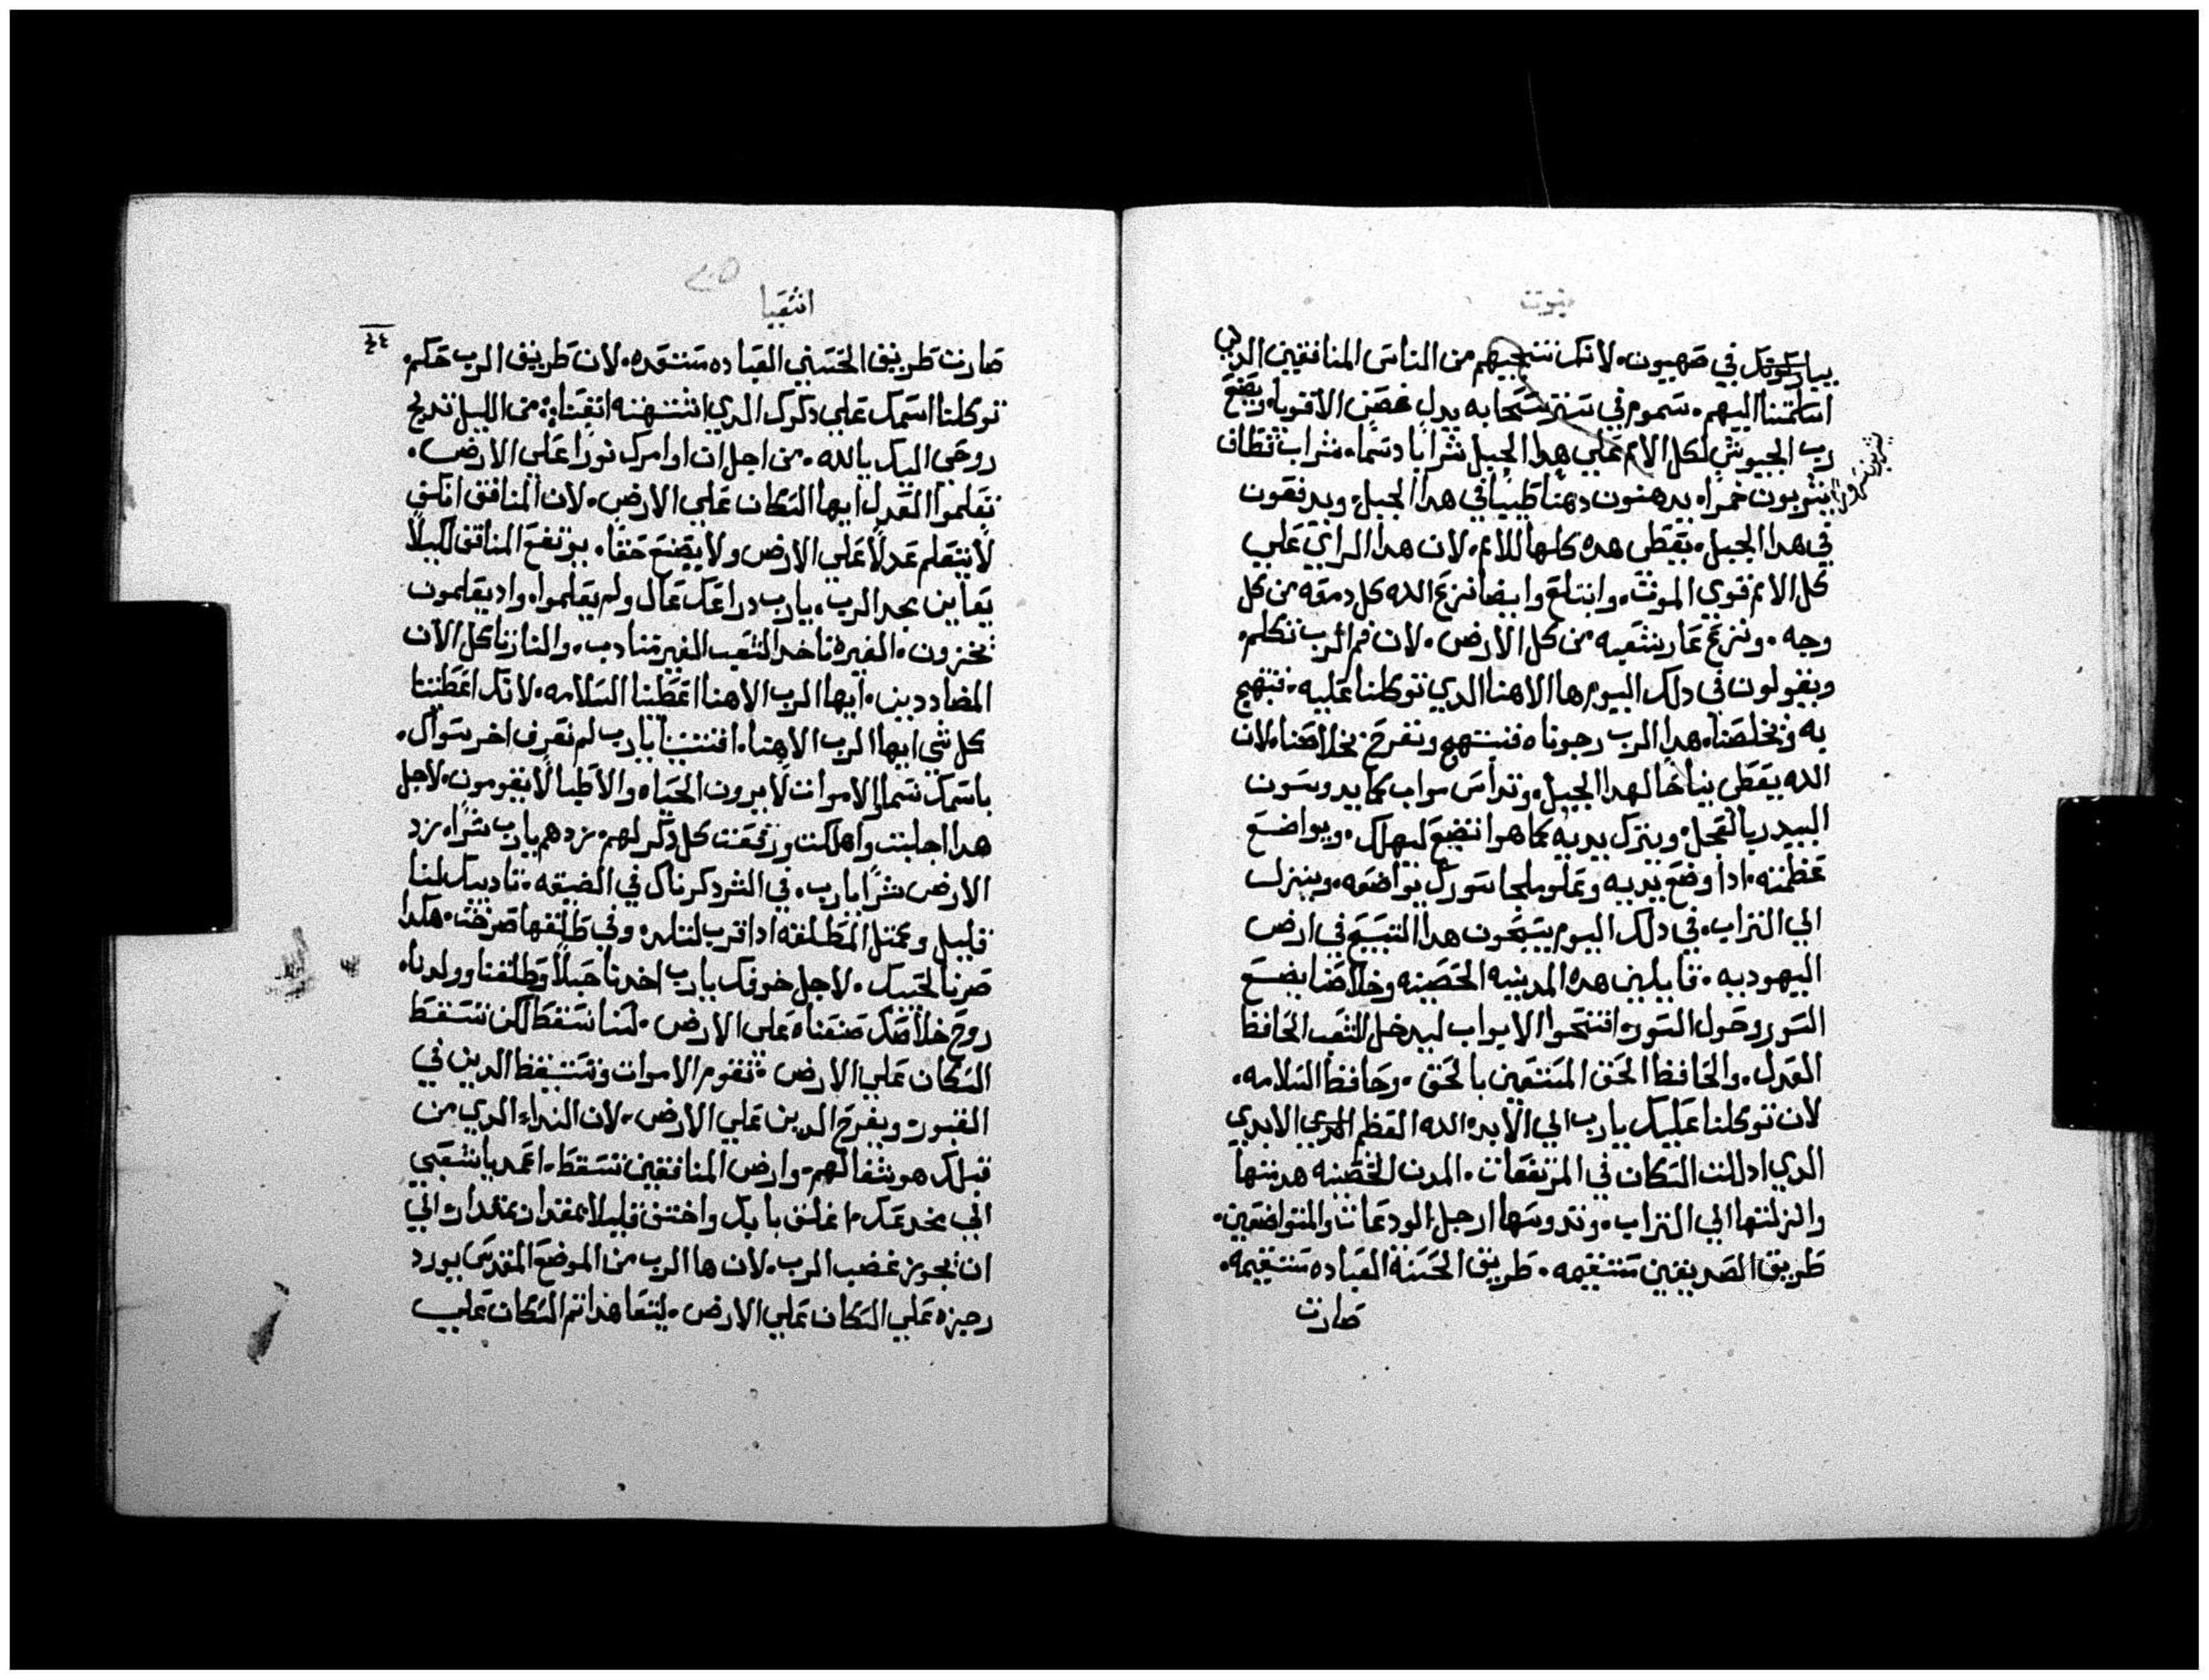 نبوت
يباركونك في صهيون. لانك تنجيهم من الناس المنافقين الدين
اسلمتنا اليهم. سموم في ستر سحابه يدل غصن الاقويا. ويصنع
رب الجيوش لكل الامم علي هدا الجبل شرابا دسما. شراب نظاف
يشربون خمرا. يدهنون دهنا طيبا في هدا الجبل. ويدفعون
في هدا الجبل. يعطي هده كلها للامم. لان هدا الراي علي
كل الامم قوي الموت. وابتلع وايضا نزع الله كل دمعه من كل
وجه. ونزع عار شعبه من كل الارض. لان فم الرب تكلم.
ويقولون في دلك اليوم ها الاهنا الدي توكلنا عليه. نبتهج
به ويخلصنا. هدا الرب رجوناه فنبتهج ونفرح بخلاصنا. لان
الله يعطي نياحا لهدا الجبل. وتداس مواب كما يدوسون
البيدر بالعجل. وينزل يديه كما هو اتضع ليهلك. ويواضع
عظمته. ادا وضع يديه وعلو ملجا سورك يواضعه. وينزل
الي التراب. في دلك اليوم يسبحون هدا التسبيح في ارض
اليهوديه. قايلين هده المدينه الحصينه وخلاصنا يضع
السور وحول السور. افتحوا الابواب ليدخل الشعب الحافظ
العدل. والحافظ الحق المستعين بالحق. وحافظ السلامه.
لان توكلنا عليك يارب الي الابد. الله العظم الابدي
الدي ادللت السكان في المرتفعات. المدن الحصينه هدمتها
وانزلتها الي التراب. وتدوسها ارجل الودعات والمتواضعين.
طريق الصديقين مستقيمه. طريق الحسنة العباده مستقيمه.
صارت
اشعيا
٤٤
صارت طريق الحسني العباده مستعده. لان طريق الرب حكم.
توكلنا اسمك علي دكرك الدي اشتهته انفسنا. من الليل تدلج
روحي اليك يالله. من اجل ان اوامرك نورا علي الارض.
تعلموا العدل ايها السكان علي الارض. لان المنافق انكفي
لا يتعلم عدلا علي الارض ولا يصنع حقا. يرتفع المنافق لكيلا
يعاين مجد الرب. يارب دراعك عال ولم يعلموا. واد يعلمون
يخزون. الغيرة تاخد الشعب الغير متادب. والنار تاكل الان
المضاددين. ايها الرب الاهنا اعطنا السلامه. لانك اعطيتنا
كل شي ايها الرب الاهنا. اقتنينا يارب لم نعرف اخر سواك.
باسمك نسما الاموات لا يرون الحياه والاطبا لا يقومون. لاجل
هدا اجلبت واهلكت ورفعت كل دكر لهم. زدهم يارب شرا. زد
الارض شرا يارب. في الشر دكرناك في الضيقه. تاديبك لنا
قليل وكمتل المطلقه ادا قرب لتلد. وفي طلقها صرخت. هكدا
صرنا لحبيبك. لاجل خوفك يارب اخدنا حبلا وطلقنا وولدنا.
روح خلاصك صنعناه علي الارض. لسنا نسقط لكن تسقط
السكان علي الارض. تقوم الاموات وتستيقظ الدين في
القبور ويفرح الدين علي الارض. لان النداء الدي من
قبلك هو شفا لهم. وارض المنافقين تسقط. اعمد يا شعبي
الي مخدعك. اغلق بابك واختفي قليلا بمقدار بمقدار الي
ان يجوز غضب الرب. لان ها الرب من الموضع المقدس يورد
رجزه علي السكان علي الارض. لتعاهد انتم السكان علي